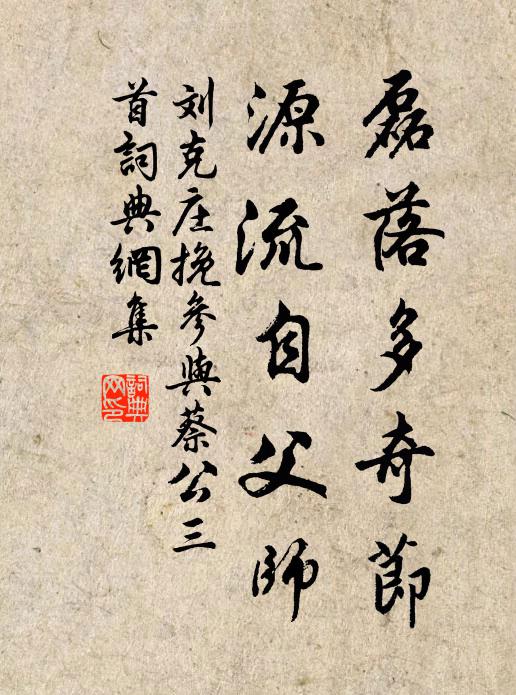 磊落多奇節
源流自父師
刘克庄挽參與蔡公三
首詞典網集
詞典網印